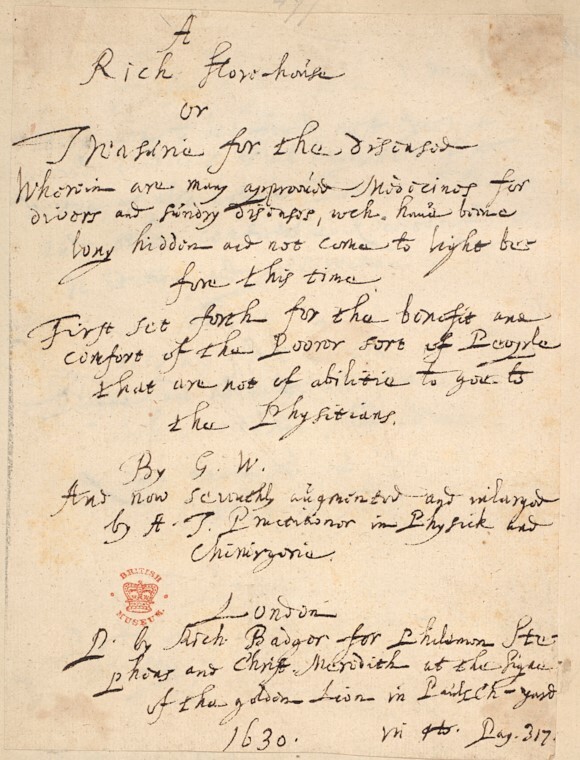 A
Rich store-house
or
Treasurie for the diseased
Wherein are many approoved Medicines for
divers and sundry diseases, wch. have beene
long hidden and not come to light be=
fore this time.
First set forth for the benefit and
comfort of the Poorer sort of People
that are not of abilitie to goe to
the Physitians.
By G. W.
And now seventhly augmented and inlarged
by A. T. Practitioner in Physick and
Chirurgerie.
BRITISH
MUSEUM
London
P. by Rich. Badger for Philemon Ste-
phens and Christ. Meredith at the signe
of the golden Lion in Pauls Ch-yard
1630. in 4to. Pag. 317.